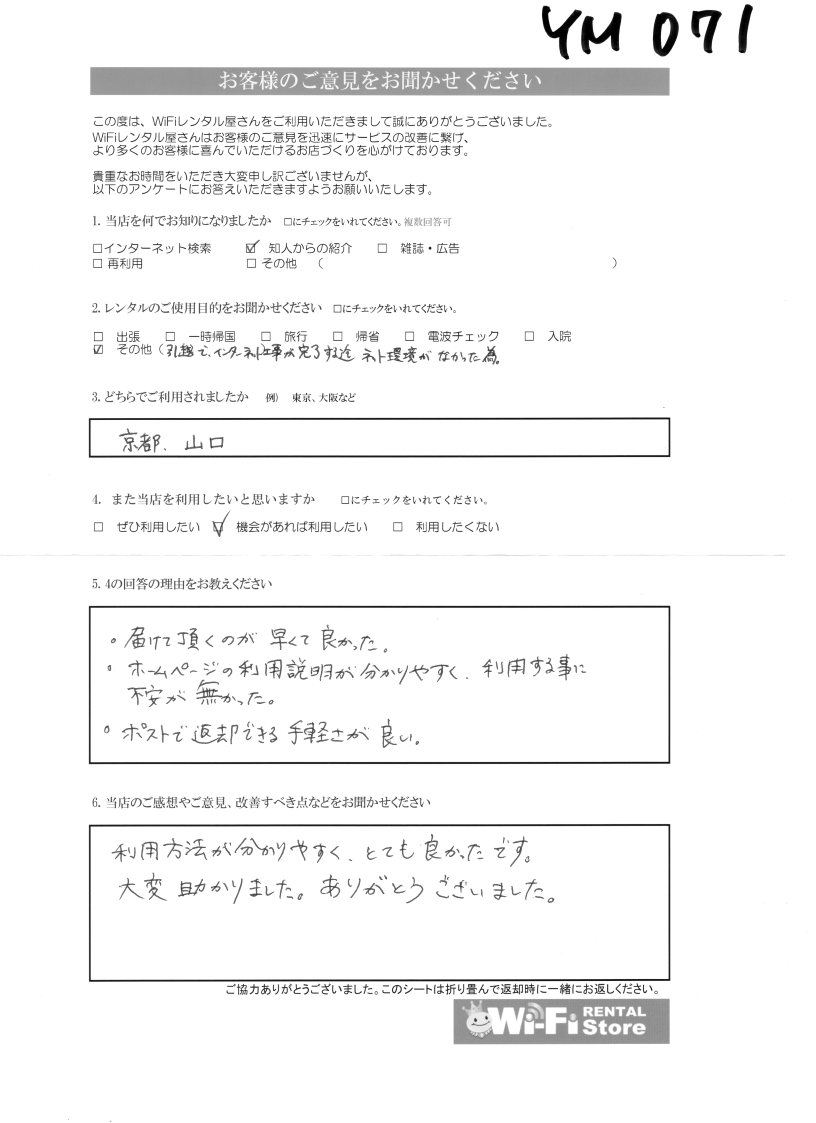 YM 071
お客様のご意見をお聞かせください
この度は、WiFiレンタル屋さんをご利用いただきまして誠にありがとうございました。
WiFiレンタル屋さんはお客様のご意見を迅速にサービスの改善に繋げ、
より多くのお客様に喜んでいただけるお店づくりを心がけております。
貴重なお時間をいただき大変申し訳ございませんが、
以下のアンケートにお答えいただきますようお願いいたします。
1. 当店を何でお知りになりましたか □にチェックをいれてください。複数回答可
□インターネット検索 ☑ 知人からの紹介 □ 雑誌・広告
□ 再利用 □ その他 ( )
2. レンタルのご使用目的をお聞かせください □にチェックをいれてください。
□ 出張 □ 一時帰国 □ 旅行 □ 帰省 □ 電波チェック □ 入院
☑ その他 (引越で、インターネット工事が完了する迄 ネット環境が なかった為。
3. どちらでご利用されましたか 例) 東京、大阪など
京都、山口
4. また当店を利用したいと思いますか □にチェックをいれてください。
□ ぜひ利用したい ☑ 機会があれば利用したい □ 利用したくない
5. 4の回答の理由をお教えください
。届けて頂くのが 早くて良かった。
。ホームページの利用説明が分かりやすく、利用する事に
不安が無かった。
。ポストで返却できる手軽さが良い。
6. 当店のご感想やご意見、改善すべき点などをお聞かせください
利用方法が分かりやすく、とても良かったです。
大変助かりました。ありがとうございました。
ご協力ありがとうございました。このシートは折り畳んで返却時に一緒にお返しください。
Wi-Fi RENTAL
Store